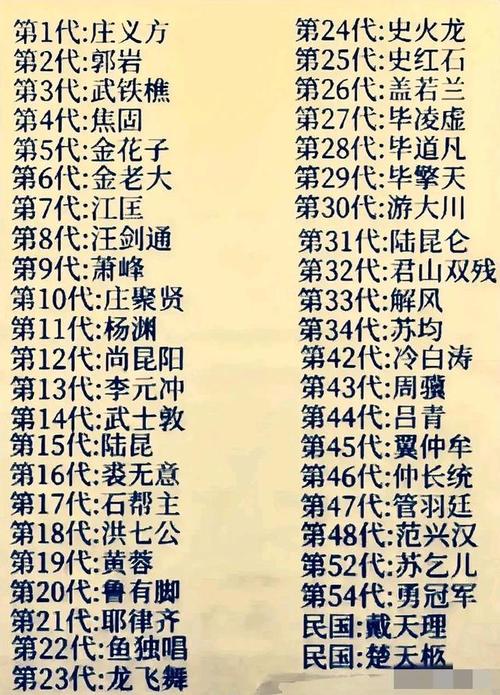 第1代:庄义方
第2代:郭岩
第3代:武铁樵
第4代:焦固
第5代:金花子
第6代:金老大
第7代:江匡
第8代:汪剑通
第9代:萧峰
第10代:庄聚贤
第11代:杨渊
第12代:尚昆阳
第13代:李元冲
第14代:武士敦
第15代:陆昆
第16代:裘无意
第17代:石帮主
第18代:洪七公
第19代:黄蓉
第20代:鲁有脚
第21代:耶律齐
第22代:鱼独唱
第23代:龙飞舞
第24代:史火龙
第25代:史红石
第26代:盖若兰
第27代:毕凌虚
第28代:毕道凡
第29代:毕擎天
第30代:游大川
第31代:陆昆仑
第32代:君山双残
第33代:解风
第34代:苏均
第42代:冷白涛
第43代:周骥
第44代:吕青
第45代:翼仲牟
第46代:仲长统
第47代:管羽廷
第48代:范兴汉
第52代:苏乞儿
第54代:勇冠军
民国:戴天理
民国:楚天枢